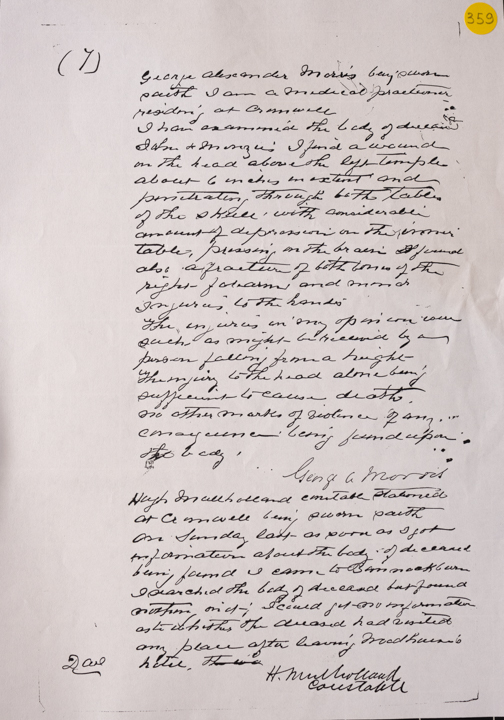 359
(7)
George Alexander Morris being sworn
saith I am a medical practitioner
residing at Cromwell
I have examined the body of deceased
John I find a wound
on the head above the left temple
about 6 inches in extent and
penetrating through both tables
of the skull with considerable
amount of depression on the inner
table, pressing on the brain I found
also a fracture of both bones of the
right forearm and minor
injuries to the hands
The injuries in my opinion were
such as might be received by a
person falling from a height
The injury to the head alone being
sufficient to cause death.
no other marks of violence of any
consequence being found upon
the body.
George A Morris
Hugh Mulholland constable stationed
at Cromwell being sworn saith
on Sunday last as soon as I got
information about the body of deceased
being found I came to Bannockburn
I searched the body of deceased but found
nothing on it, I could get no information
as to whether the deceased had visited
any place after leaving
hotel,
H. Mulholland
Constable